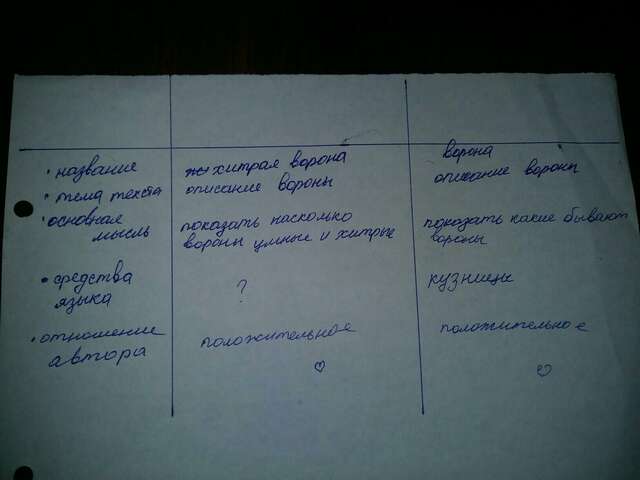 ворона
• название хитрая ворона
описание вороны
• тема текста описание вороны
• основная мысль показать насколько вороны умные и хитрые показать какие бывают вороны
• средства языка ? кузницы
• отношение автора положительное положительное